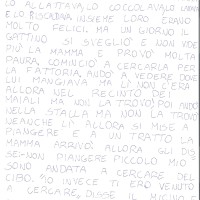 LO ALLATTAVA, LO COCCOLAVA, LAVAVA
E LO RISCALDAVA INSIEME LORO ERANO
MOLTO FELICI. MA UN GIORNO IL
GATTINO SI SVEGLIÒ E NON VIDE
PIÙ LA MAMMA E PROVÒ MOLTA
PAURA. COMINCIÒ A CERCARLA PER
LA FATTORIA, ANDÒ A VEDERE DOVE
LUI MANGIAVA MA LÌ NON C'ERA
ALLORA NEL RECINTO DEI
MAIALI MA NON LA TROVÒ, POI ANDÒ
NELLA STALLA MA NON LA TROVÒ
NEANCHE LÌ. ALLORA SI MISE A
PIANGERE E A UN TRATTO LA
MAMMA ARRIVÒ. ALLORA GLI DIS
SE:-NON PIANGERE PICCOLO MIO
SONO ANDATA A CERCARE DEL
CIBO. -IO INVECE TI ERO VENUTO
A CERCARE, DISSE IL MICINO E